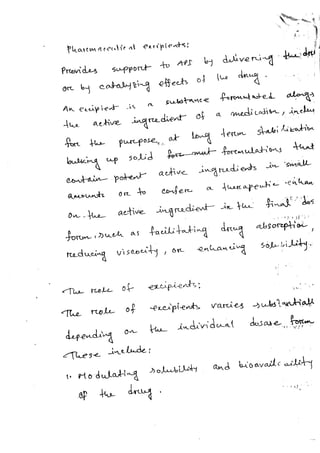 Pharmaceutical excipients:
Provides support to API by delivering the dru
or by catalyzing effects of the drug.
An excipient is a substance formulated alongs
the active ingredient of a medication, inclu
for the purpose, at long term stabilization
bulking up solid formulations that
contain potent active ingredients in small
amounts or to confer a therapeutic enhan
on the active ingredient in the final dos
form, such as facilitating drug absorption,
reducing viscocity, or enhancing solubility.
The role of excipients:
The role of excipients varies substantiall
depending on the individual dosage form
These include:
1. Modulating solubility and bioavailability
of the drug.